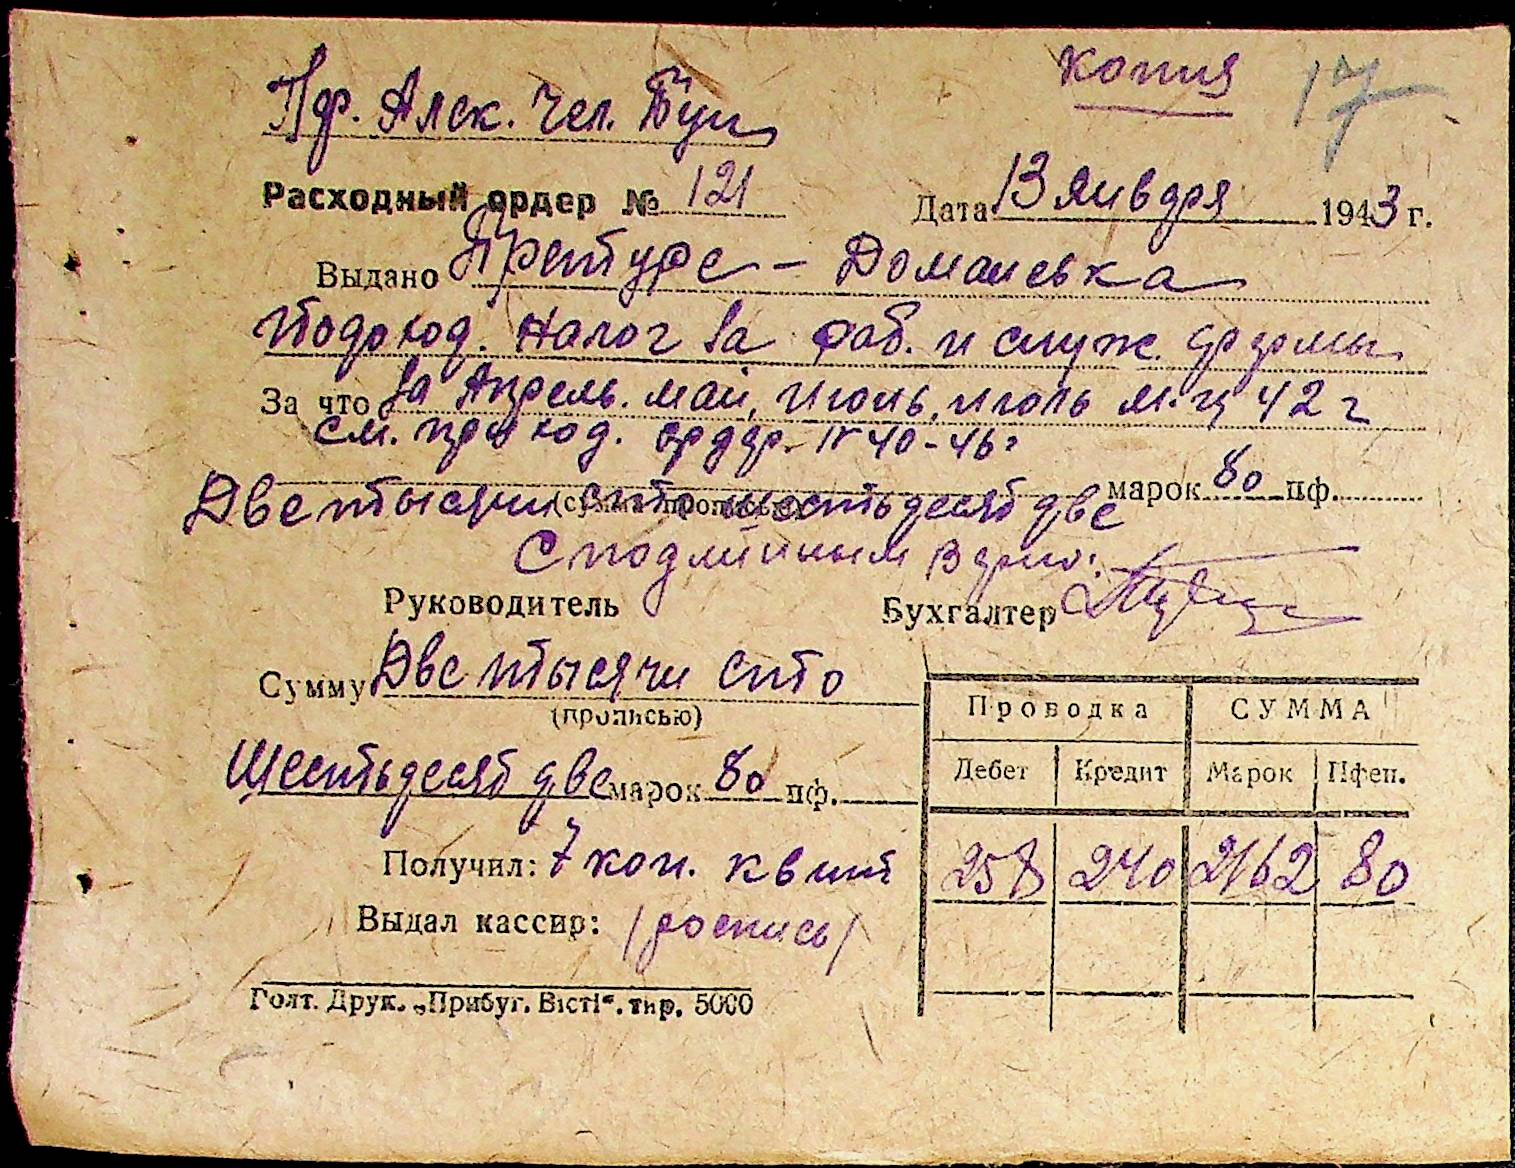 Копия 17
Пф. Алек. Чел. Буш
Расходный ордер № 121 Дата 13 января 1943 г.
Выдано Претуре - Доманевка
Подоход. налог за раб. и служ. фермы
За что за Апрель. май, июнь, июль м-ц 42 г
см. приход. ордер. № 40-46г
марок 80 пф.
(сумма прописью)
Две тысячи сто шестьдесят две
С подлинным верно:
Руководитель Бухгалтер
Сумму Две тысячи сто
(прописью)
Шестьдесят две марок 80 пф.
Проводка СУММА
Дебет Кредит Марок Пфен.
258 240 2162 80
Получил: 7 коп. квит
Выдал кассир: /роспись/
Голт. Друк. „Прибуг. Вісті“. тир. 5000